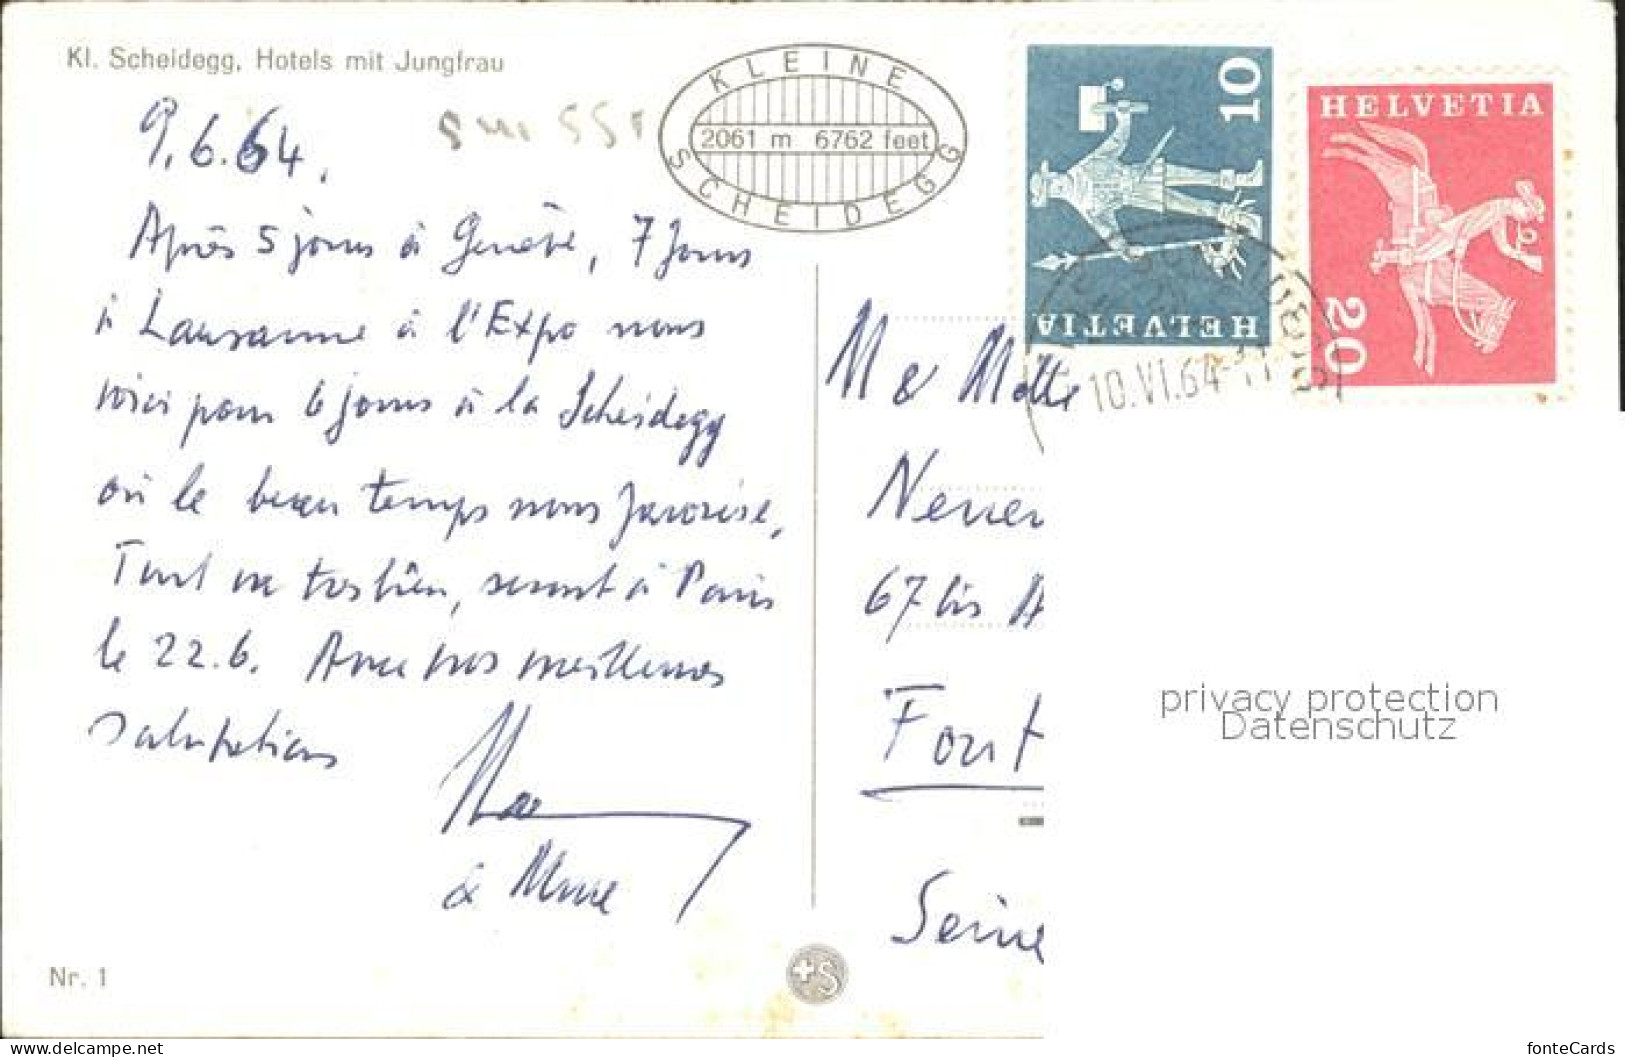 Kl. Scheidegg, Hotels mit Jungfrau
KLEINE
2061 m 6762 feet
SCHEIDEGG
9.6.64.
Après 5 jours à Genève, 7 jours
à Lausanne à l'Expo nous
voici pour 6 jours à la Scheidegg
où le beau temps nous favorise,
Tout va très bien, seront à Paris
le 22.6. Avec nos meilleures
salutations
& Mme
Nr. 1
HELVETIA
10
HELVETIA
20
10.VI.64-11
M & Mette
67 bis A
Font
Seine
privacy protection
Datenschutz
https://www.delcampe.net
fonteCards